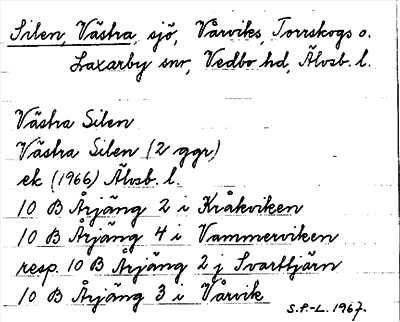 Silen, Västra, sjö, Vårviks, Torrskogs o.
Laxarby snr, Vedbo hd, Älvsb. l.
Västra Silen
Västra Silen (2 ggr)
ek (1966) Älvsb. l.
10 B Årjäng 2 i Kråkviken
10 B Årjäng 4 i Vammerviken
resp. 10 B Årjäng 2 j Svarttjärn
10 B Årjäng 3 i Vårvik
S.P.-L. 1967.